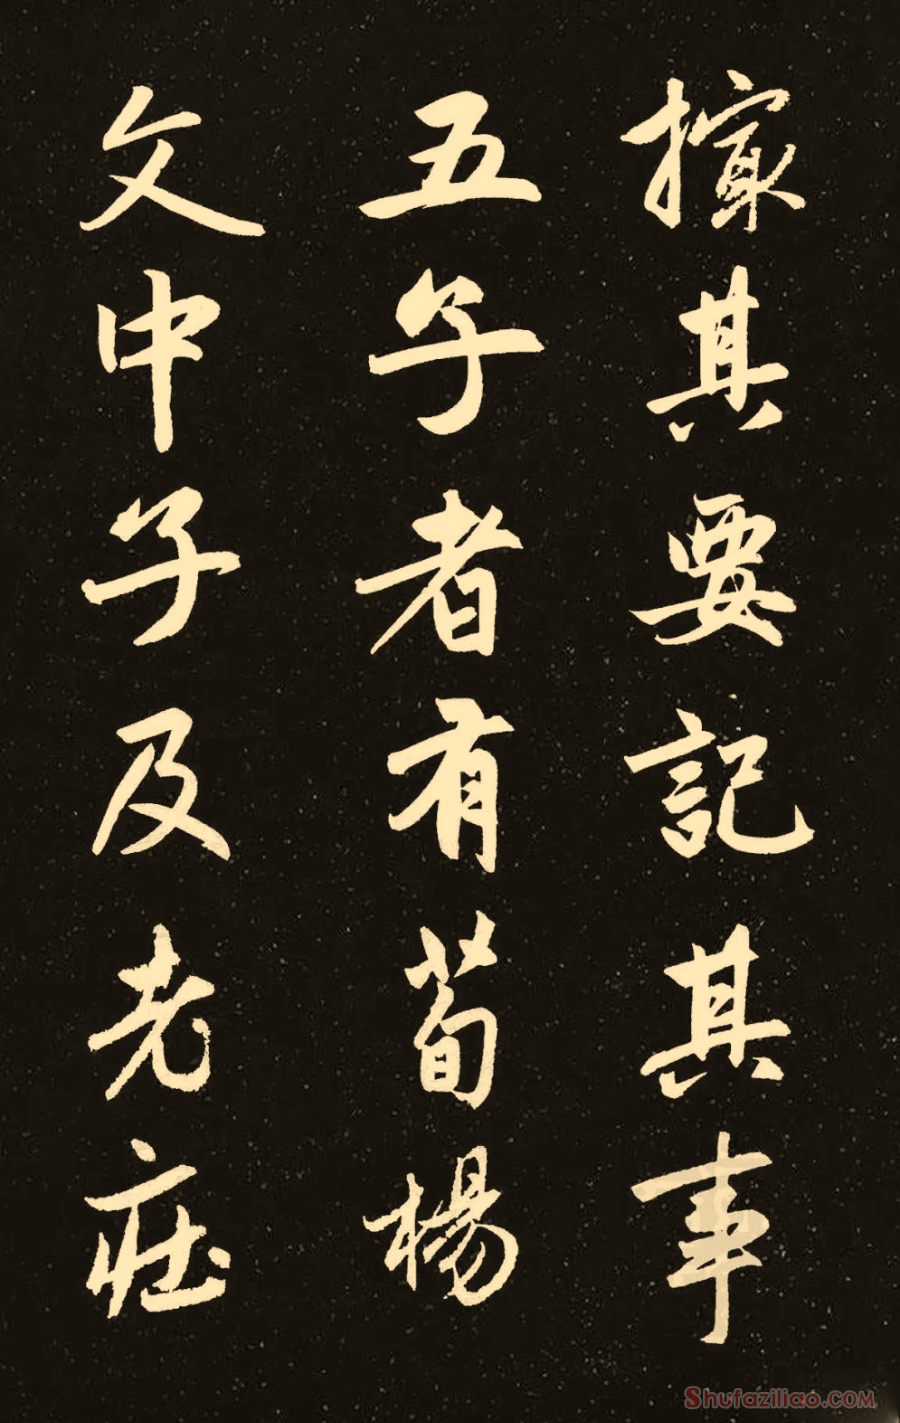 撮其要記其事
五子者有荀楊
文中子及老莊
Shufaziliao.com